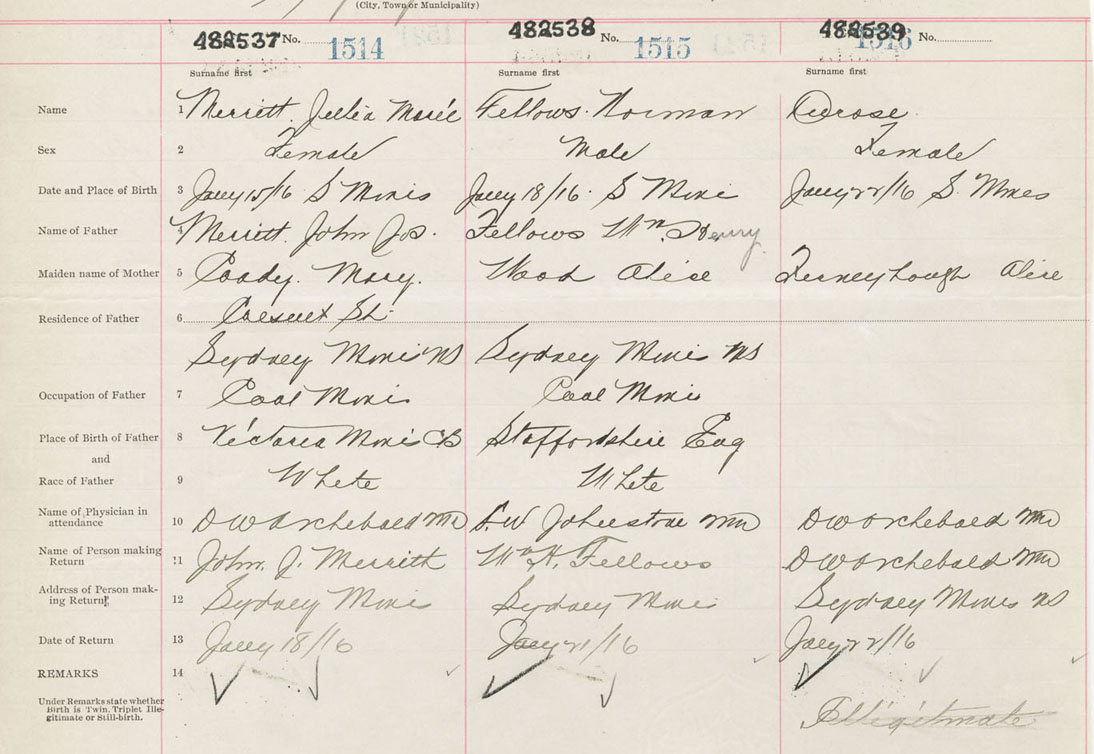 (City, Town or Municipality)
482537 No. 1514 482538 No. 1515 482539 No. 1516
Surname first Surname first Surname first
Name 1 Merritt. Julia Marie Fellows. Norman Rose
Sex 2 Female Male Female
Date and Place of Birth 3 Jany 15/16 S Mines Jany 18/16. S Mines Jany 22/16 S. Mines
Name of Father 4 Merritt. John Jos. Fellows Wm. Henry
Maiden name of Mother 5 Coady. Mary. Wood Alice Ferneyhough Alice
Residence of Father 6 Crescent St.
Sydney Mines NS Sydney Mines NS
Occupation of Father 7 Coal Mines Coal Mines
Place of Birth of Father 8 Victoria Mines CB Staffordshire Eng
and
Race of Father 9 White White
Name of Physician in
attendance 10 D W Archibald MD Johnstone MD D W Archibald MD
Name of Person making
Return 11 John. J. Merritt Wm H. Fellows D W Archibald MD
Address of Person mak-
ing Return 12 Sydney Mines Sydney Mines Sydney Mines NS
Date of Return 13 Jany 18/16 Jany 21/16 Jany 22/16
REMARKS 14
Under Remarks state whether
Birth is Twin, Triplet Ille-
gitimate or Still-birth. Illegitimate